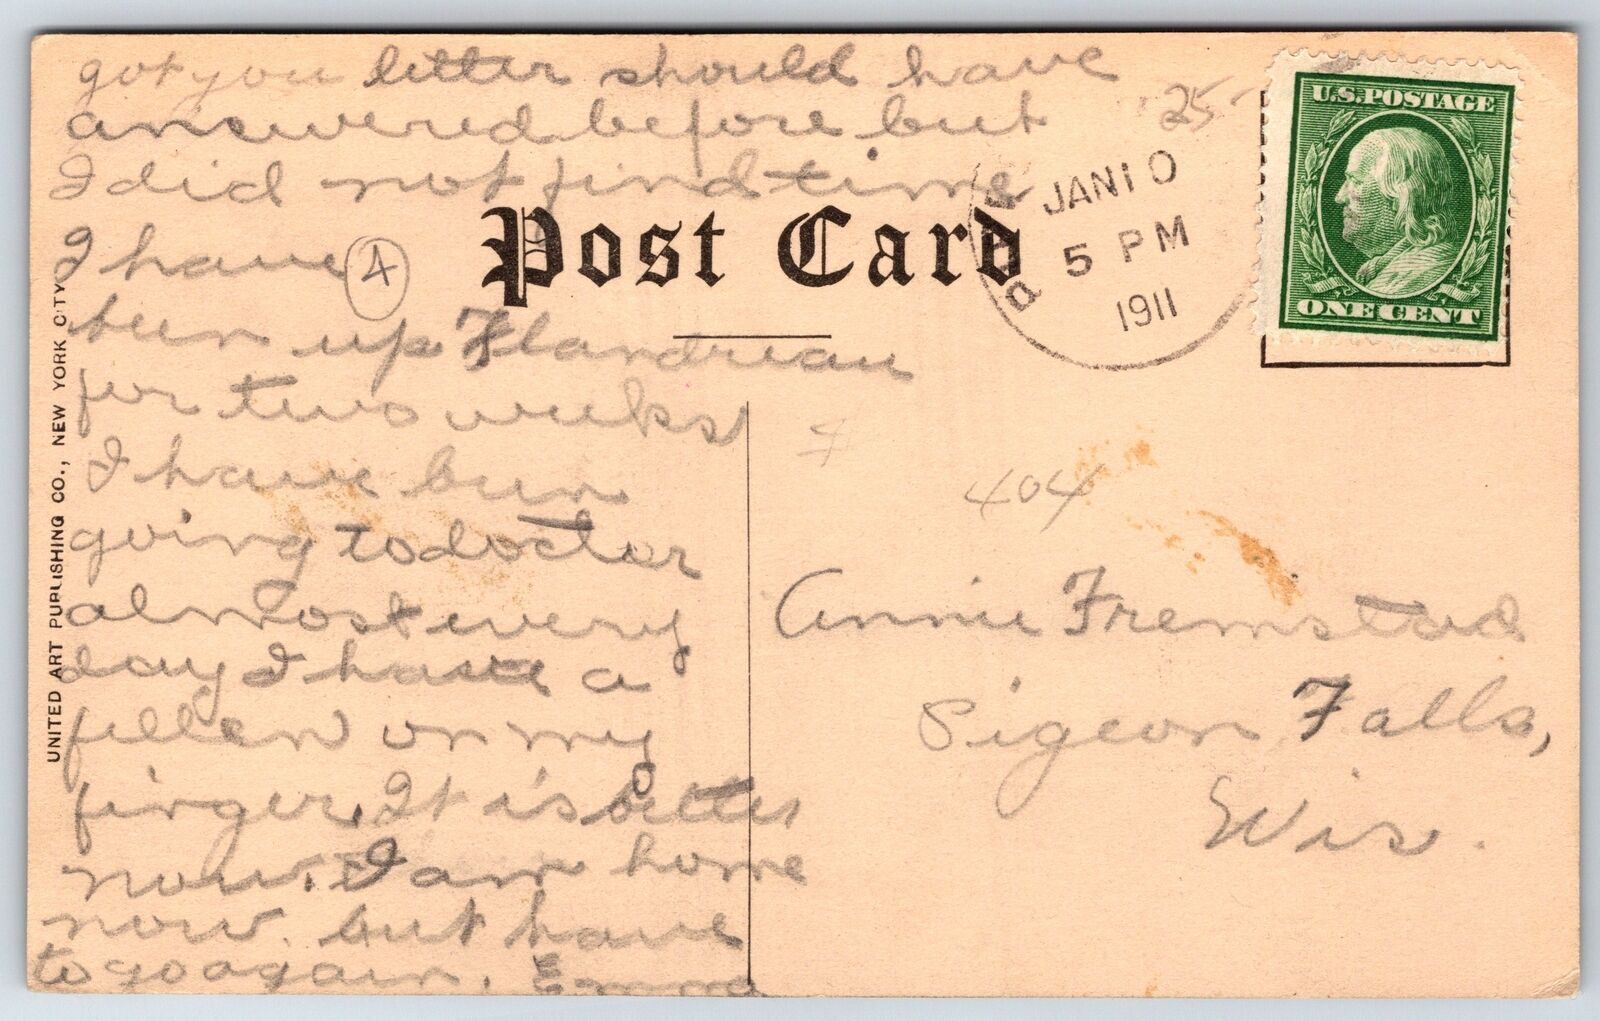 got you letter should have
answered before but
I did not find time
I have
bun up Flandreau
for two weeks
I have bun
going to doctor
almost every
day I have a
fellen on my
finger. It is better
now. I am home
now. but have
to go again. Emma
4
Post Card
25-
JAN 10
5 PM
1911
U.S. POSTAGE
ONE CENT
404
Annie Fremstad
Pigeon Falls,
Wis.
UNITED ART PUBLISHING CO., NEW YORK CITY